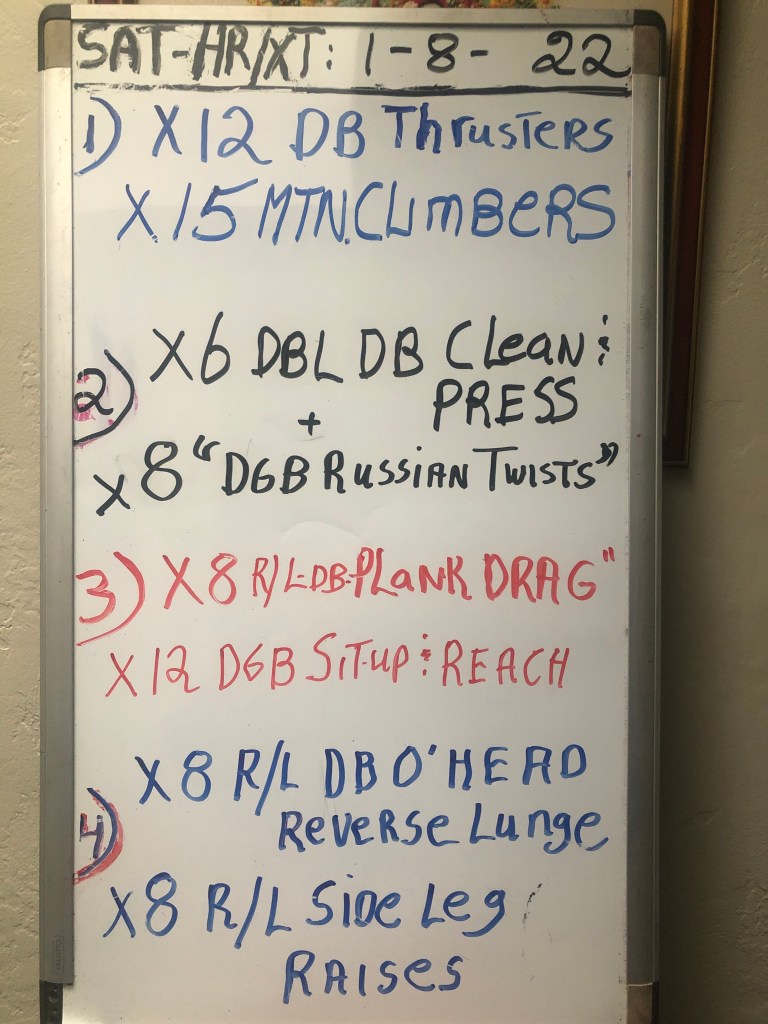 SAT-HR/XT: 1-8- 22
1) X12 DB Thrusters
X15 MTN. CLimBeRS
2) X6 DBL DB Clean &
PRESS
+
x8 "DGB RUSSIAN TWISTS"
3) X8 R/L-DB-PLaNK DRAG"
X12 DGB SIT-UP & REACH
4) X8 R/L DB O'HEAD
ReveRSe Lunge
X8 R/L Side Leg
RAISeS